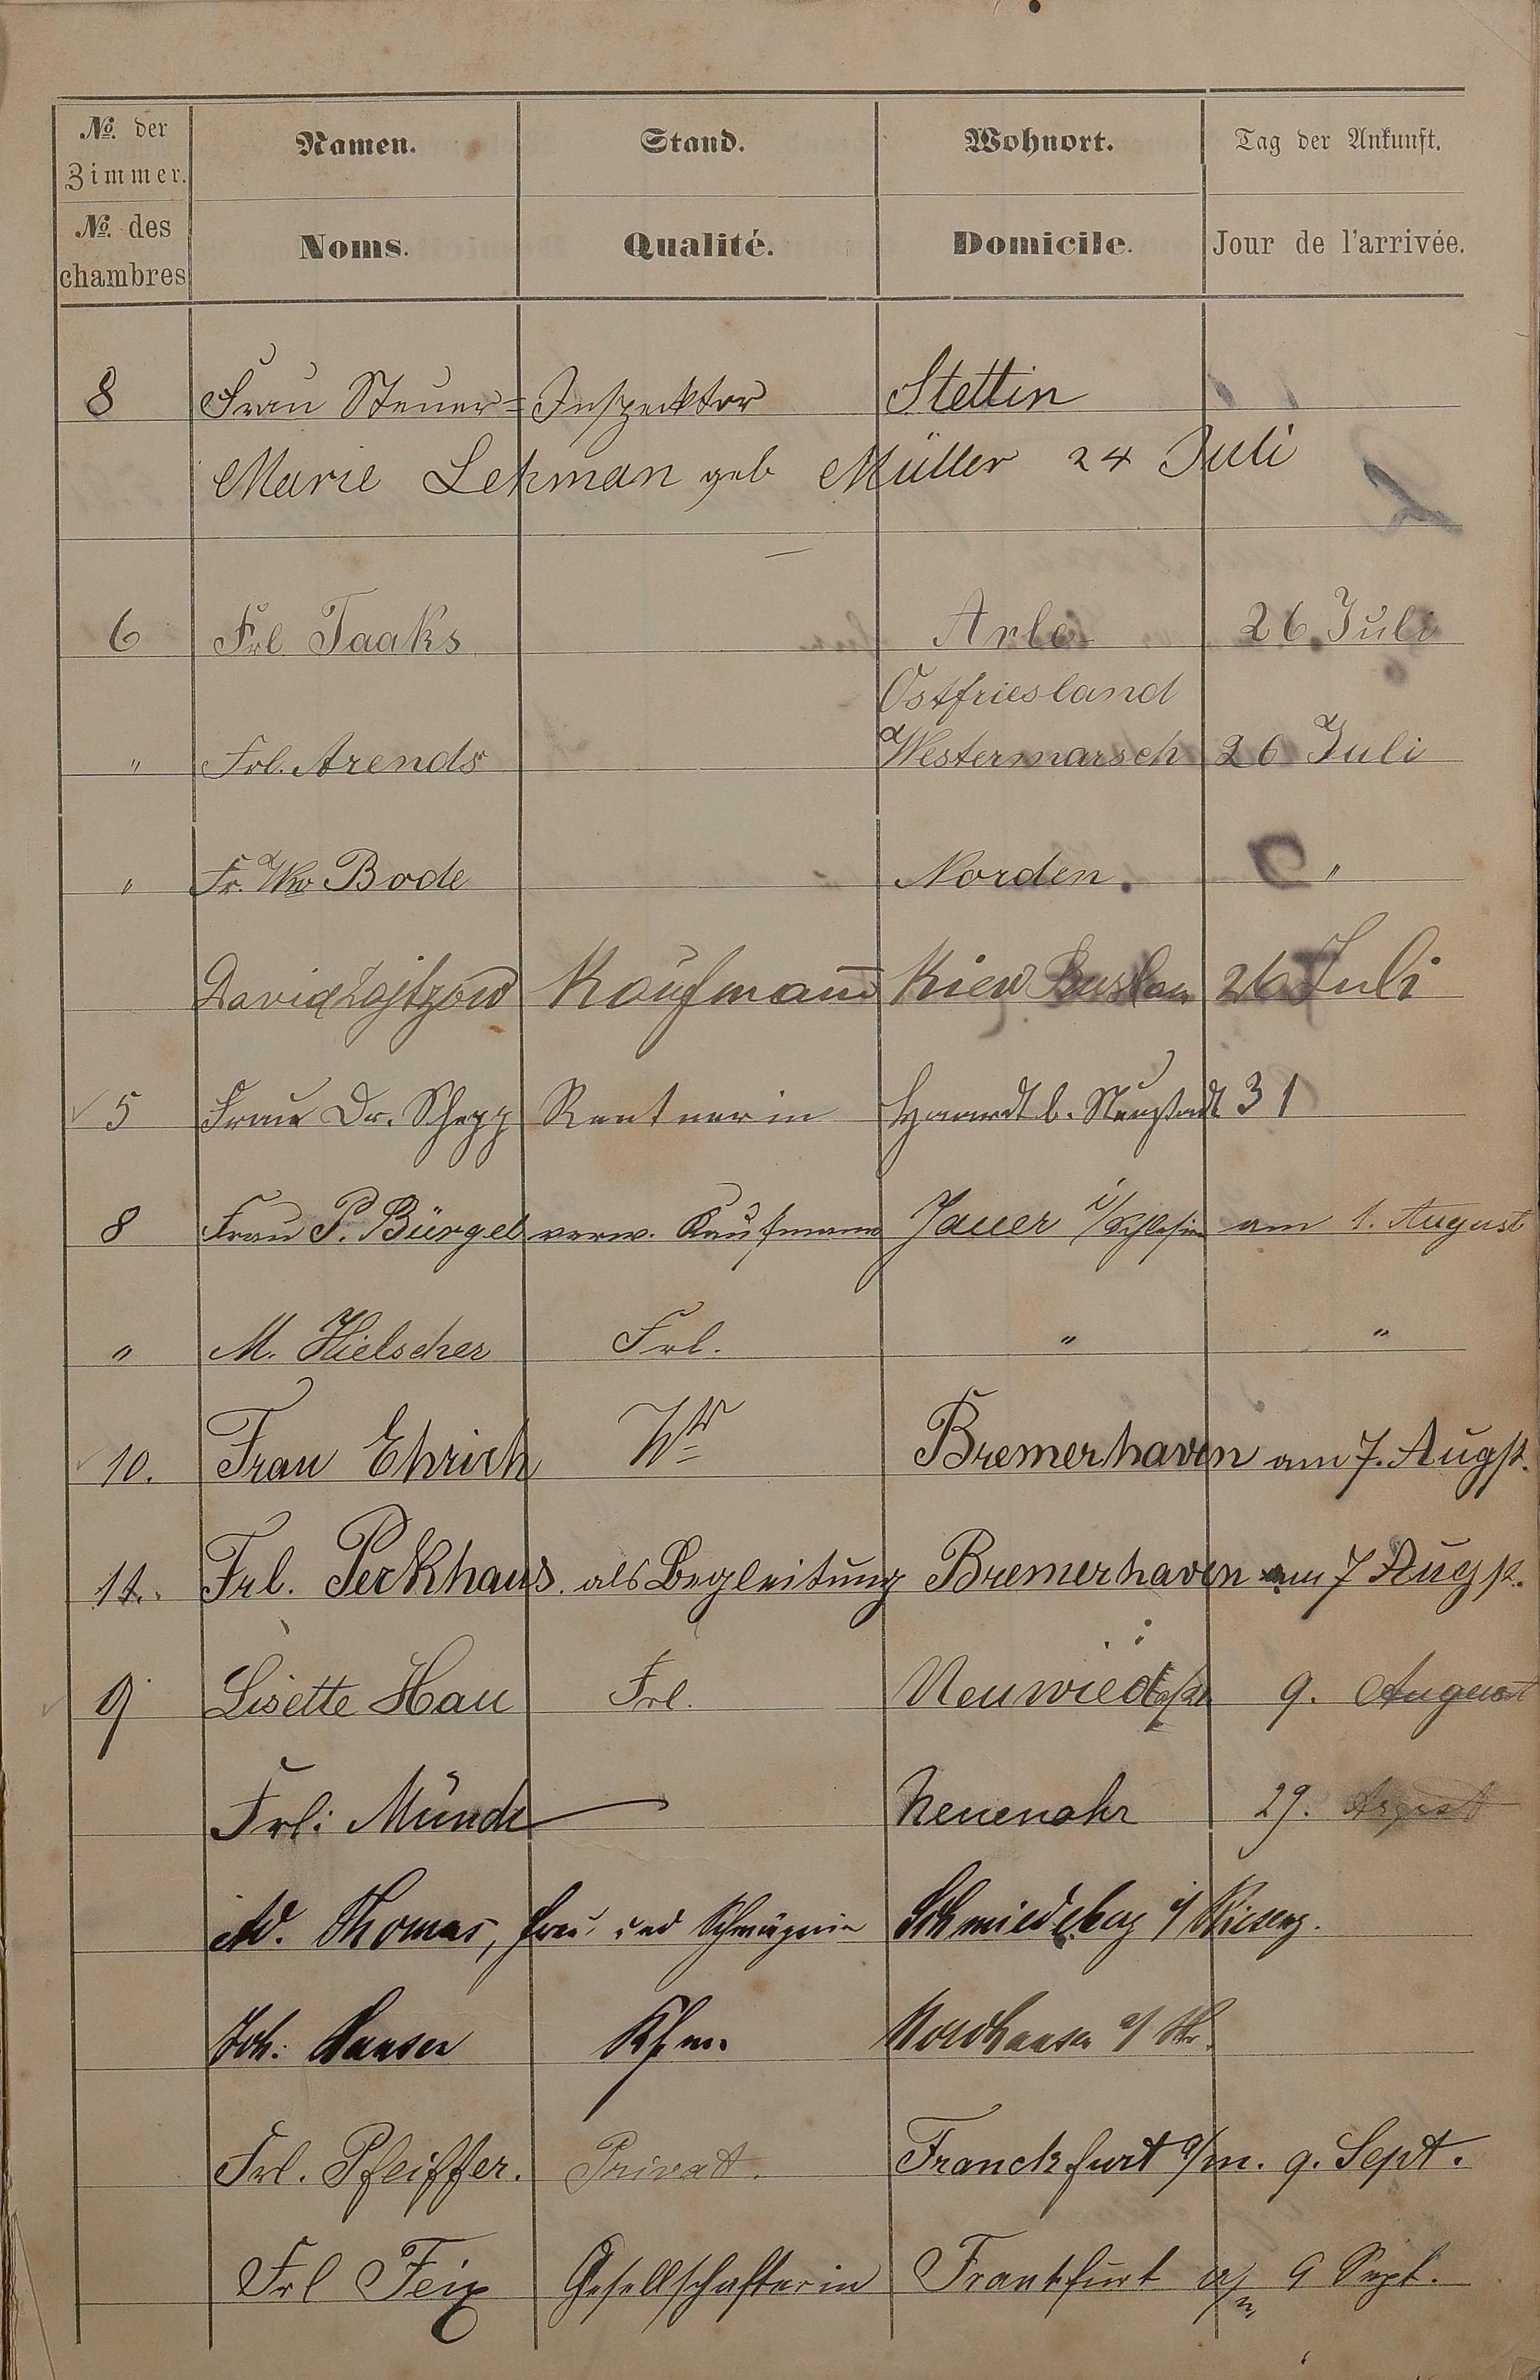 № der Zimmer. Namen. Stand. Wohnort. Tag der Ankunft.
№ des chambres Noms. Qualité. Domicile. Jour de l'arrivée.
8 Frau Steuer= Inspecktor Stettin
Marie Lehman geb Müller 24 Juli
6 Frl Taaks Arle 26. Juli
Ostfriesland
" Frl. Arends Westermarsch 26 Juli
" Fr. Ww Bode Norden. "
David Kaufmann Kiew 26 Juli
5 Frau Dr. Schepp Rentnerin Haardt b. Neustadt 31
8 Frau P. Bürgel verw. Kaufmann Jauer i/Schlesien am 1. August
" M. Hielscher Frl. " "
10. Frau Ehrich Ww Bremerhaven am 7. Augst.
11. Frl. Peckhaus. als Begleitung Bremerhaven am 7 Augst.
9 Lisette Hau Frl. Neuwied a/Rh 9. August
Frl: Münch Neuenahr 29. August
Ad. Thomas, Frau und Schwägerin Schmiedeberg i/ Rieseng.
Joh: Hansen Kfm. Nordhausen a/ Hr.
Frl. Pfeiffer. Privat. Franckfurt a/m. 9. Sept.
Frl Feix Gesellschafterin Frankfurt a/m 9 Sept.